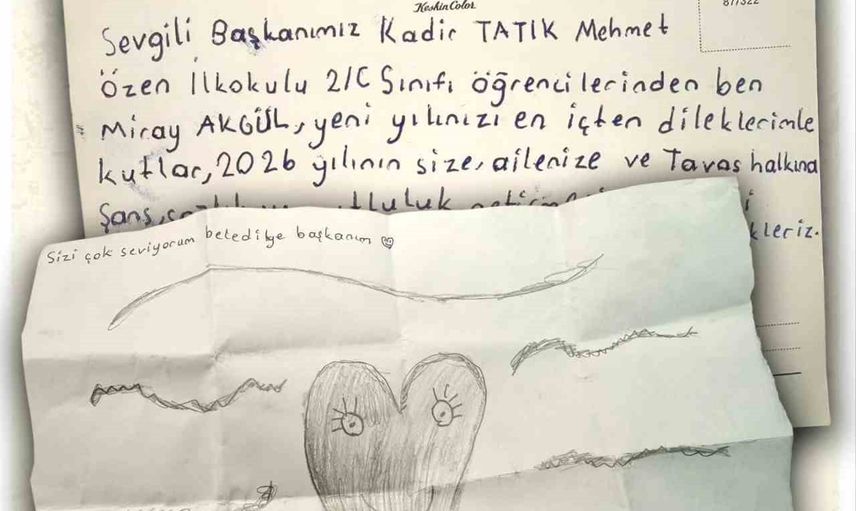 Keskin Color
811322
Sevgili Başkanımız Kadir TATIK Mehmet
Özen İlkokulu 2/C Sınıfı öğrencilerinden ben
Miray AKGÜL, yeni yılınızı en içten dileklerimle
kutlar, 2026 yılının size, ailenize ve Tavas halkına
Şans,
kleriz.
Sizi çok seviyorum belediye başkanım